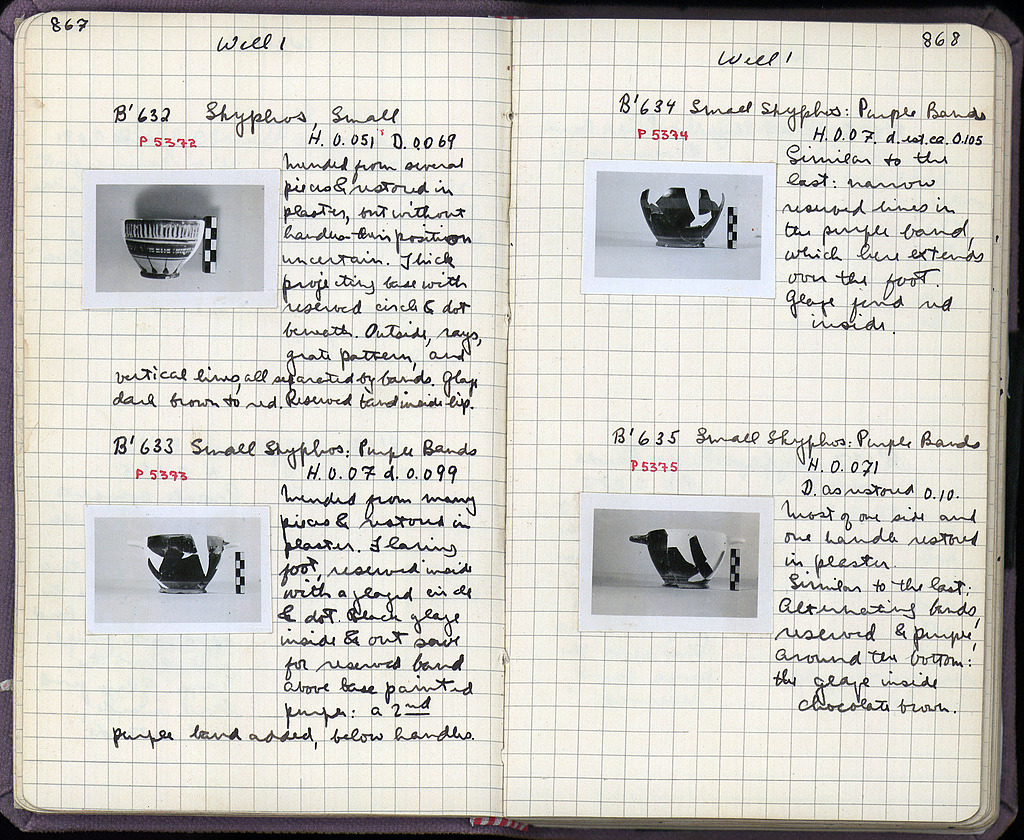 867
Well 1
B'632 Skyphos, Small
P 5372
H. 0.051 D. 0.069
Mended from several
pieces & restored in
plaster, but without
handles - their position
uncertain. Thick
projecting base with
reserved circle & dot
beneath. Outside, rays,
grate pattern, and
vertical lines, all separated by bands. Glaze
dark brown to red. Reserved band inside lip.
B'633 Small Skyphos: Purple Bands
P 5373
H. 0.07 d. 0.099
Mended from many
pieces & restored in
plaster. Flaring
foot, reserved inside
with a glazed circle
& dot. Black glaze
inside & out save
for reserved band
above base painted
purple: a 2nd
purple band added, below handles.
868
Well 1
B'634 Small Skyphos: Purple Bands
P 5374
H. 0.07. d. est. ca. 0.105
Similar to the
last: narrow
reserved lines in
the purple band,
which here extends
over the foot.
Glaze fired red
inside.
B'635 Small Skyphos: Purple Bands
P 5375
H. 0.071
D. as restored 0.10.
Most of one side and
one handle restored
in plaster.
Similar to the last:
Alternating bands,
reserved & purple,
around the bottom:
the glaze inside
chocolate brown.